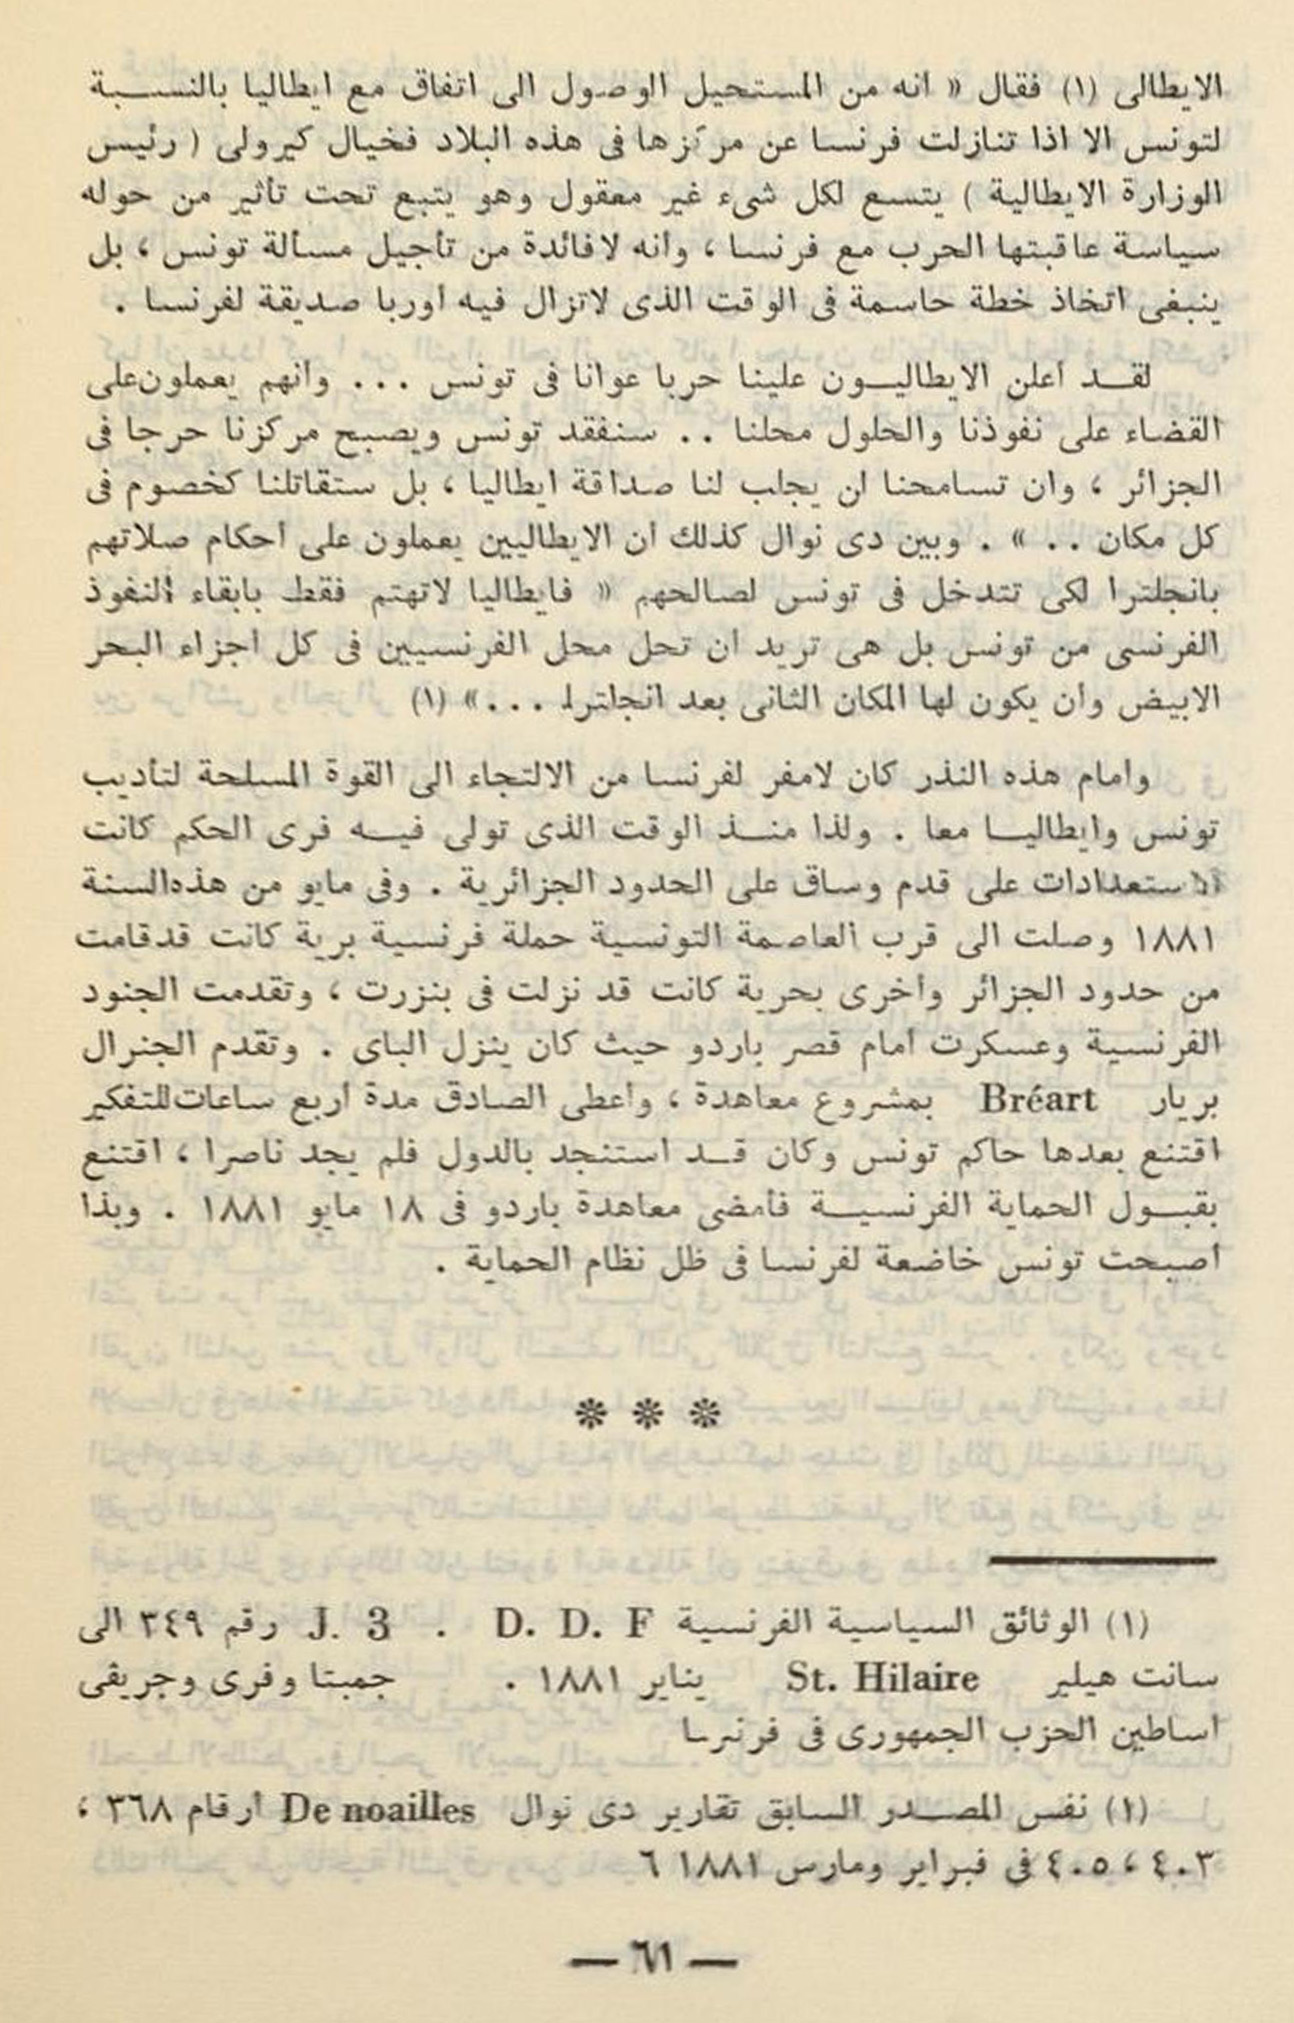 الايطالى (١) فقال « انه من المستحيل الوصول الى اتفاق مع ايطاليا بالنسبة
لتونس الا اذا تنازلت فرنسا عن مركزها فى هذه البلاد فخيال كيرولى ( رئيس
الوزارة الايطالية ) يتسع لكل شىء غير معقول وهو يتبع تحت تأثير من حوله
سياسة عاقبتها الحرب مع فرنسا ، وأنه لافائدة من تأجيل مسألة تونس ، بل
ينبغى اتخاذ خطة حاسمة فى الوقت الذى لاتزال فيه أوربا صديقة لفرنسا .
لقد أعلن الايطاليون علينا حربا عوانا فى تونس ... وأنهم يعملون على
القضاء على نفوذنا والحلول محلنا .. سنفقد تونس ويصبح مركزنا حرجا فى
الجزائر ، وان تسامحنا لن يجلب لنا صداقة ايطاليا ، بل ستقاتلنا كخصوم فى
كل مكان .. » . وبين دى نوال كذلك أن الايطاليين يعملون على أحكام صلاتهم
بانجلترا لكى تتدخل فى تونس لصالحهم « فايطاليا لاتهتم فقط بابقاء النفوذ
الفرنسى من تونس بل هى تريد أن تحل محل الفرنسيين فى كل أجزاء البحر
الابيض وأن يكون لها المكان الثانى بعد انجلترا ... » (١)
وأمام هذه النذر كان لامفر لفرنسا من الالتجاء الى القوة المسلحة لتأديب
تونس وايطاليا معا . ولذا منذ الوقت الذى تولى فيه فرى الحكم كانت
الاستعدادات على قدم وساق على الحدود الجزائرية . وفى مايو من هذه السنة
١٨٨١ وصلت الى قرب العاصمة التونسية حملة فرنسية برية كانت قد قامت
من حدود الجزائر وأخرى بحرية كانت قد نزلت فى بنزرت ، وتقدمت الجنود
الفرنسية وعسكرت أمام قصر باردو حيث كان ينزل الباى . وتقدم الجنرال
بريار Bréart بمشروع معاهدة ، وأعطى الصادق مدة أربع ساعات للتفكير
اقتنع بعدها حاكم تونس وكان قد استنجد بالدول فلم يجد ناصرا ، اقتنع
بقبول الحماية الفرنسية فأمضى معاهدة باردو فى ١٨ مايو ١٨٨١ . وبذا
أصبحت تونس خاضعة لفرنسا فى ظل نظام الحماية .
* * *
(١) الوثائق السياسية الفرنسية D. D. F . J. 3 رقم ٣٤٩ الى
سانت هيلير St. Hilaire يناير ١٨٨١ . جمبتا وفرى وجريفى
أساطين الحزب الجمهورى فى فرنسا
(١) نفس المصدر السابق تقارير دى نوال De noailles أرقام ٣٦٨ ،
٤٠٣ ، ٤٠٥ فى فبراير ومارس ١٨٨١ ٦
— ٦١ —